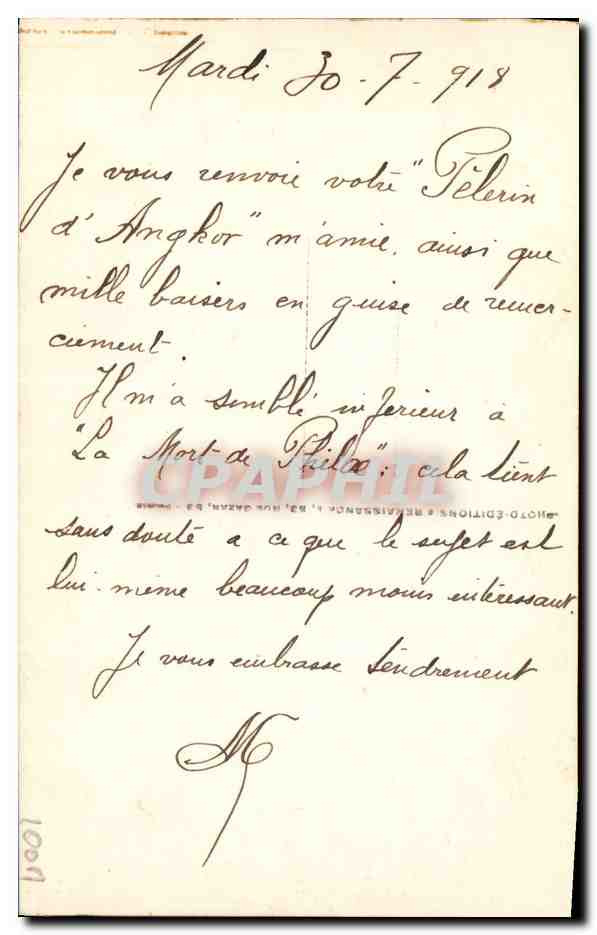 Mardi 30-7-918
Je vous renvoie votre "Pèlerin
d'Angkor" m'amie, ainsi que
mille baisers en guise de remer-
ciement.
Il m'a semblé inférieur à
"La Mort de Philæ"; cela tient
sans doute a ce que le sujet est
lui-même beaucoup moins intéressant.
Je vous embrasse tendrement
M
CPAPHIL
PHOTO-ÉDITIONS « RENAISSANCE », 53, RUE GAZAN, 53 - PARIS